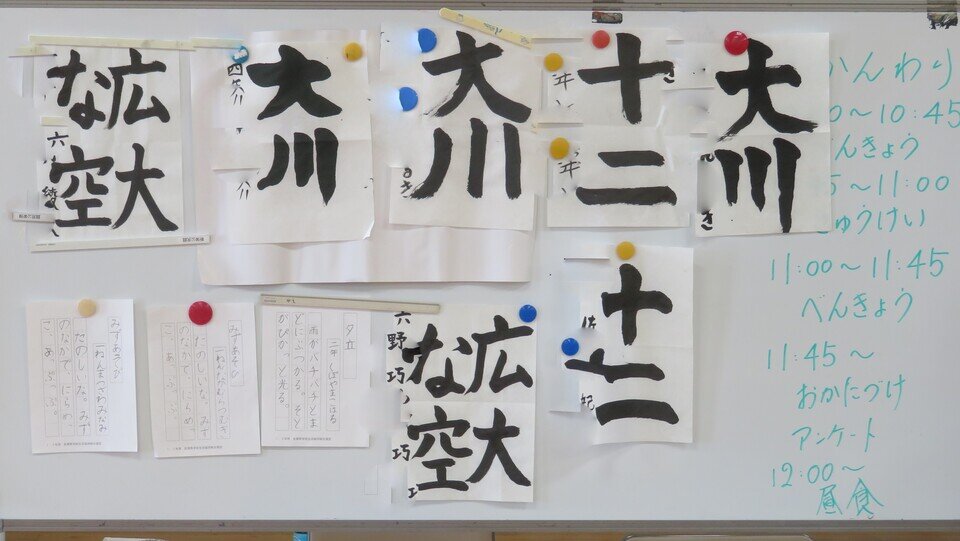 広大な空
六
大川
四
大川
十二
大川
かんわり
0～10:45
べんきょう
5～11:00
きゅうけい
11:00～11:45
べんきょう
11:45～
おかたづけ
アンケート
12:00～
昼食
みずあそび
たのしいな。みず
のなかで、にらめっ
こ、あっ、ぷっ、ぷ。
みずあそび
たのしいな。みず
のなかで、にらめっ
こ、あっ、ぷっ、ぷ。
夕立
雨がバチバチとま
どにぶつかる。そと
がぴかっと光る。
広大な空
六
十一